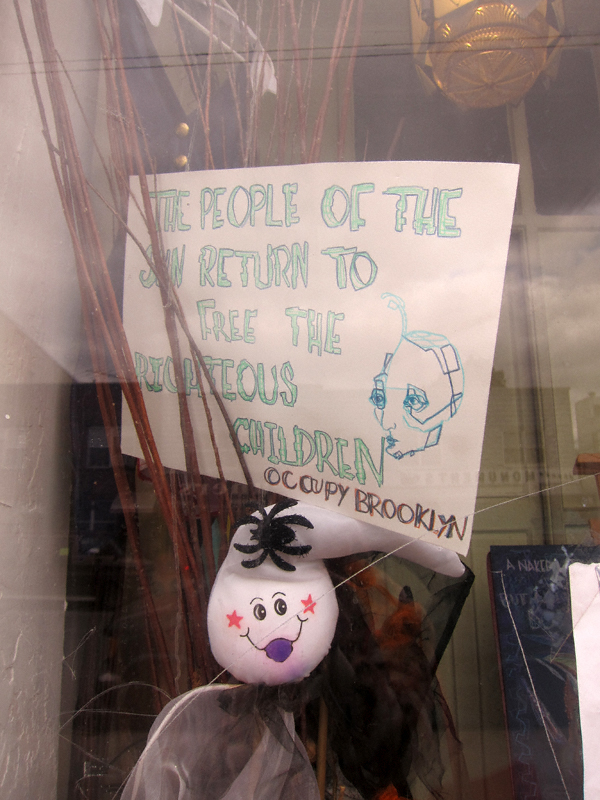 THE PEOPLE OF THE
SUN RETURN TO
FREE THE
RIGHTEOUS
CHILDREN
OCCUPY BROOKLYN
A NAKED